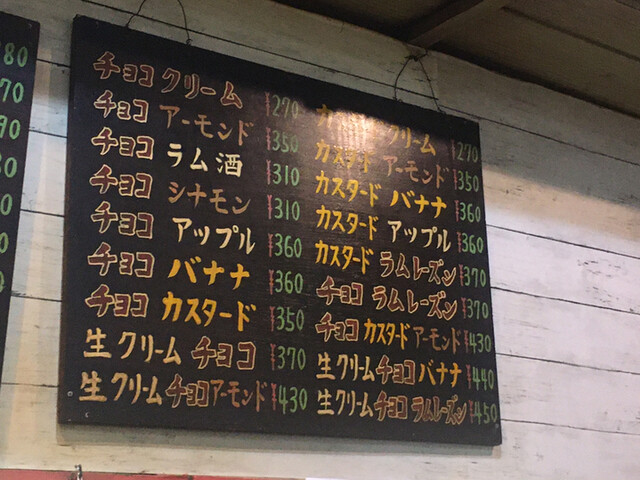 80
70
90
チョコ クリーム ¥270
チョコ アーモンド ¥350
チョコ ラム酒 ¥310
チョコ シナモン ¥310
チョコ アップル ¥360
チョコ バナナ ¥360
チョコ カスタード ¥350
生クリーム チョコ ¥370
生クリーム チョコ アーモンド ¥430
クリーム ¥270
カスタード アーモンド ¥350
カスタード バナナ ¥360
カスタード アップル ¥360
カスタード ラムレーズン ¥370
チョコ ラムレーズン ¥370
チョコ カスタード アーモンド ¥430
生クリーム チョコ バナナ ¥440
生クリーム チョコ ラムレーズン ¥450